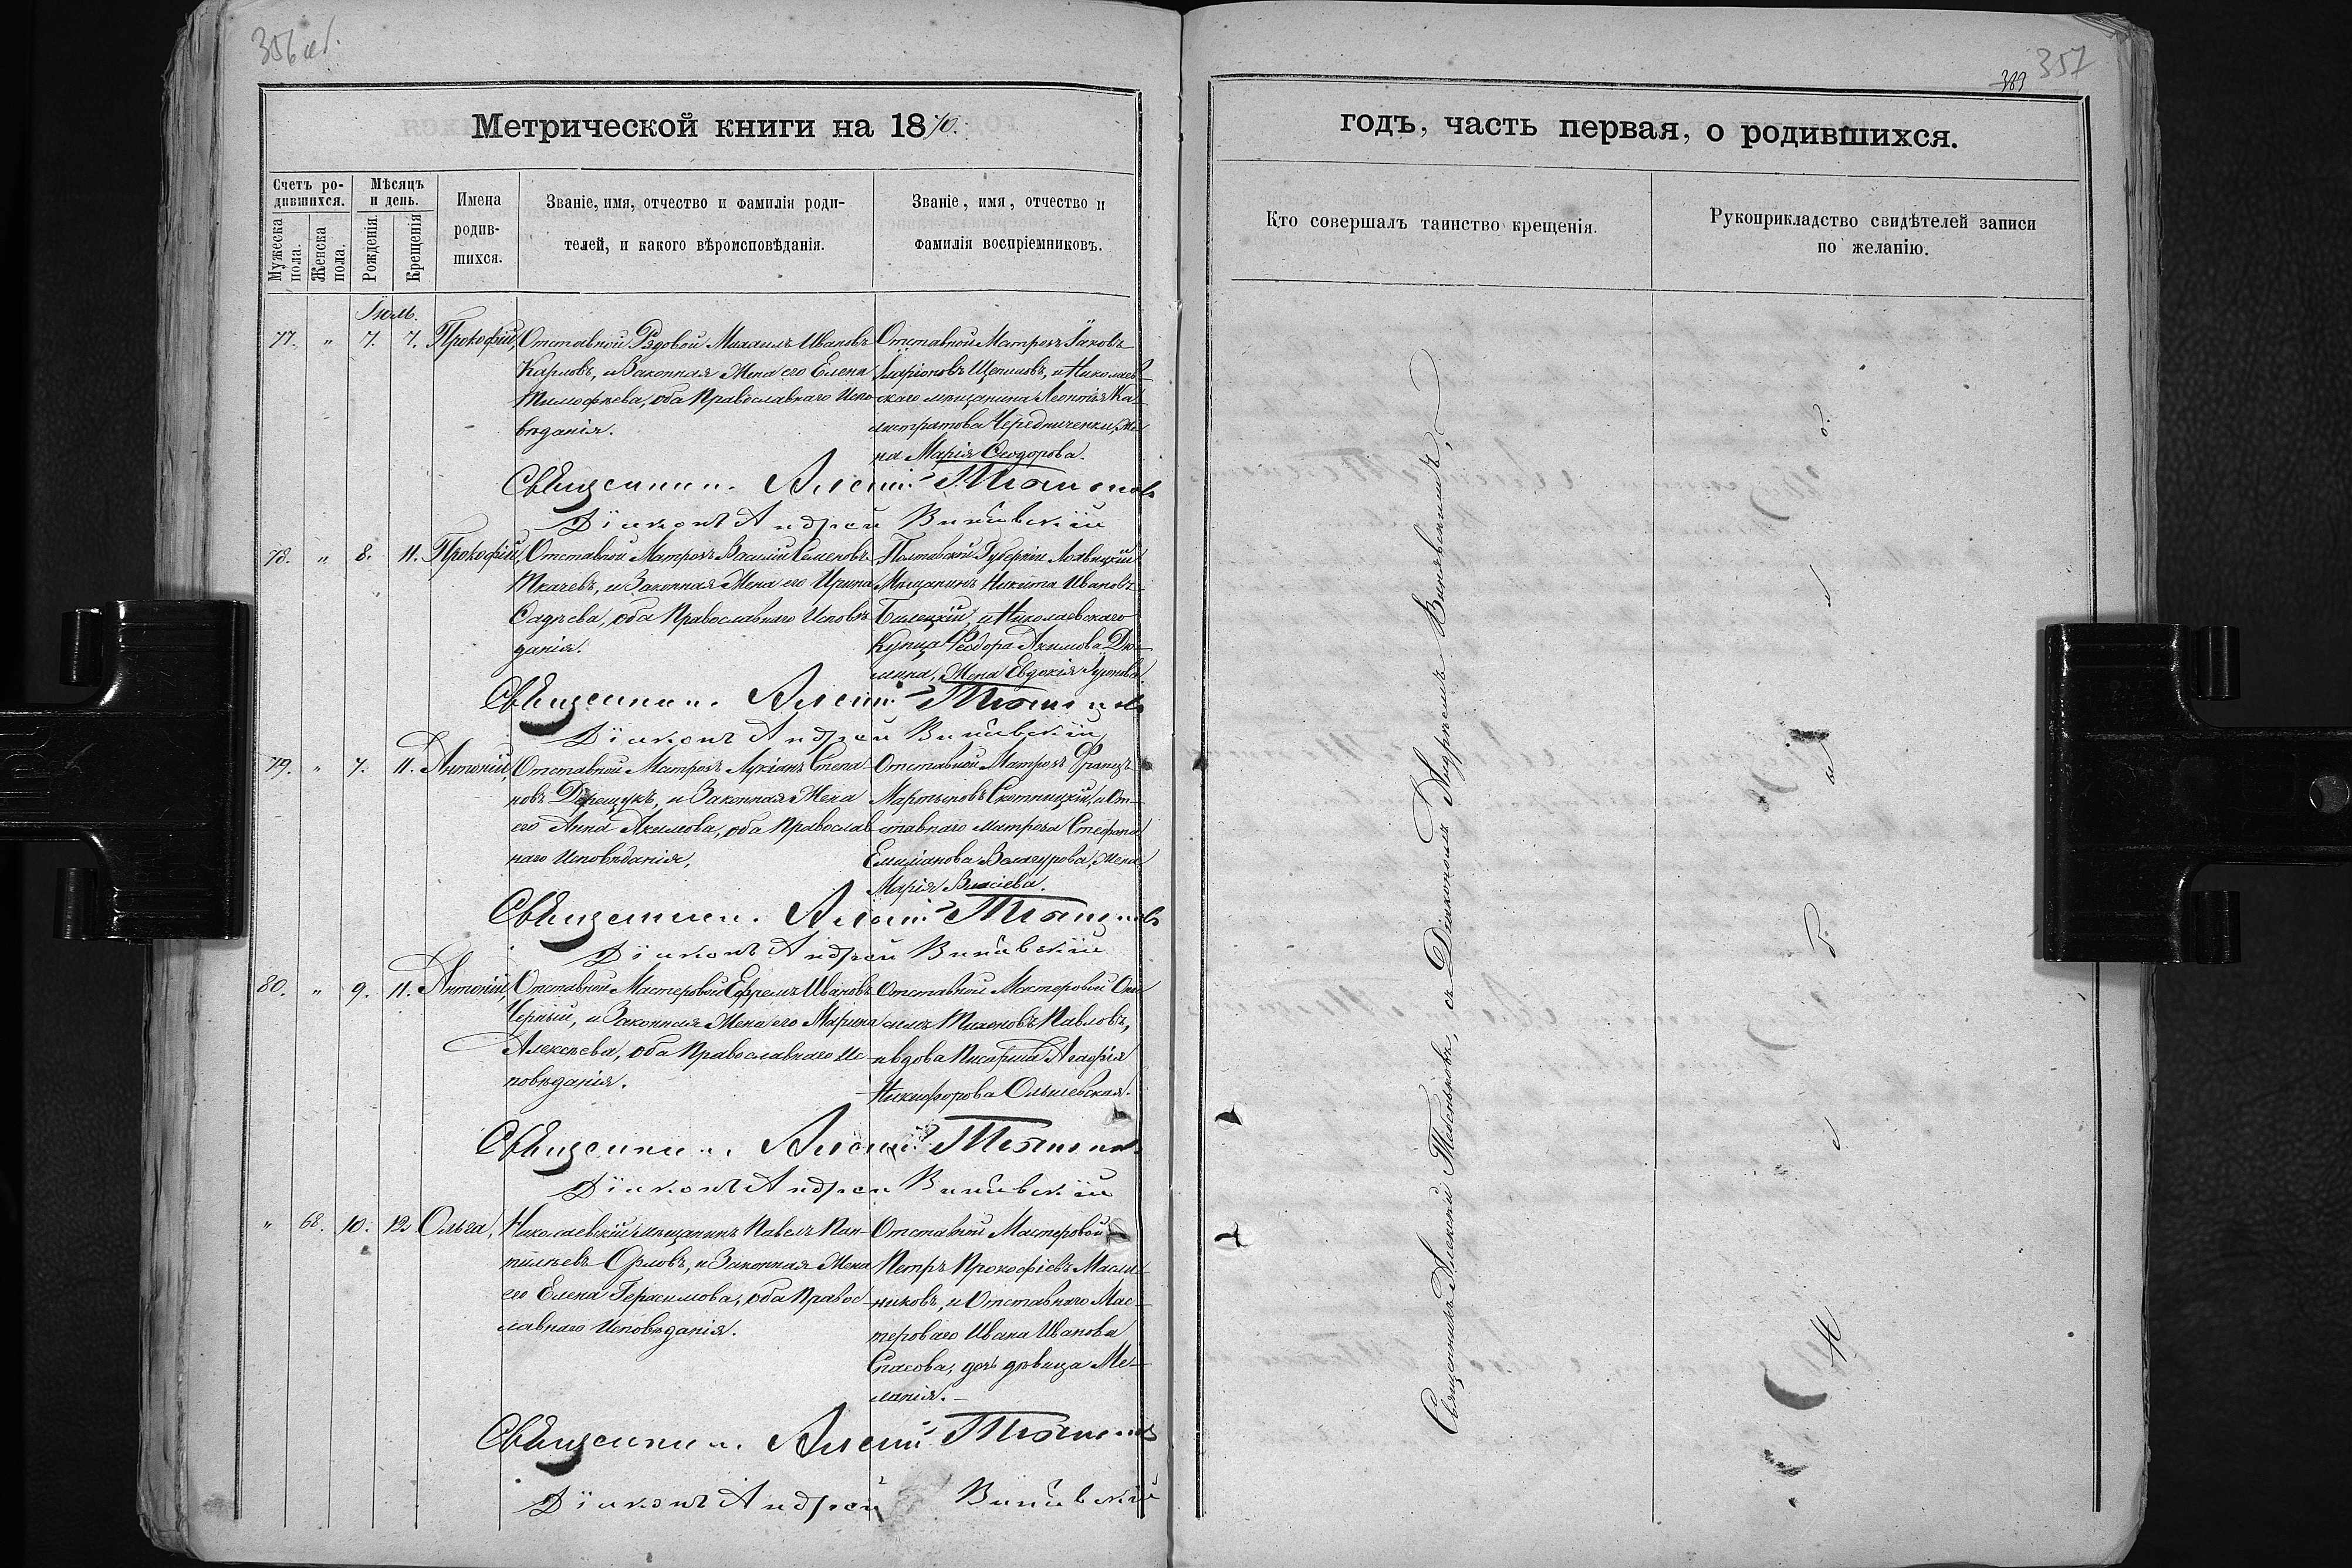 356 об.
Метрической книги на 1870.
Счетъ ро-
дившихся.
Мѣсяцъ
и день.
Мужеска
пола.
Женска
пола.
Рожденія.
Крещенія
Имена
родив-
шихся.
Званіе, имя, отчество и фамилія роди-
телей, и какого вѣроисповѣданія.
Званіе, имя, отчество и
фамилія воспріемниковъ.
Іюль.
77. " 7. 7. Прокофій,
Отставной Рядовой Михаилъ Ивановъ
Карловъ, и Законная Жена его Елена
Тимофѣева, оба Православнаго Испо-
вѣданія.
Отставной Матрозъ Іаковъ
Іларіоновъ Щепиловъ, и Николаев-
скаго мѣщанина Леонтія Ка-
листратова Чередниченки, же-
на Марія Ѳеодорова.
Священник. Алексій
Діаконъ Андрей Виневскій
78. " 8. 11. Прокофій,
Отставной Матрозъ Василій Семеновъ
Ткачевъ, и Законная Жена его Ирина
Садѣева, оба Православнаго Исповѣ-
данія.
Полтавской Губерніи
Мѣщанинъ Никита Ивановъ
Билецкій, и Николаевскаго
Купца Феодора Акимова Дю-
мина, Жена Евдокія
Священник. Алексій
Діаконъ Андрей Виневскій
79. " 7. 11. Антоній,
Отставной Матрозъ Лукіанъ Степа-
новъ Дерещукъ, и Законная Жена
его Анна Акимова, оба Православ-
наго Исповѣданія,
Отставной Матрозъ Францъ
Мартыновъ Скотницкій, и От-
ставнаго матроза Стефана
Емиліанова Жена
Марія Власіева.
Священник. Алексій
Діаконъ Андрей Виневскій
80. " 9. 11. Антоній,
Отставной Мастеровой Ефремъ Ивановъ
Черный, и Законная Жена его Марина
Алексѣева, оба Православнаго Ис-
повѣданія.
Отставной Мастеровой Они-
симъ Тихоновъ Павловъ,
и вдова Писарша Агафія
Никифорова Ольшевская.
Священник. Алексій
Діаконъ Андрей Виневскій
" 68. 10. 12 Ольга,
Николаевскій мѣщанинъ Павелъ Пан-
тилѣевъ Орловъ, и Законная Жена
его Елена Герасимова, оба Правос-
лавнаго Исповѣданія.
Отставной Мастеровой
Петръ Прокофіевъ Масли-
никовъ, и Отставнаго Мас-
тероваго Ивана Иванова
Спасова, дочь дѣвица Ме-
ланія.
Священник. Алексій
Діаконъ Андрей Виневскій
357
389
годъ, часть первая, о родившихся.
Кто совершалъ таинство крещенія.
Рукоприкладство свидѣтелей записи
по желанію.
Священникъ Алексій Тебеньковъ, съ Діакономъ Андреемъ Виневскимъ,